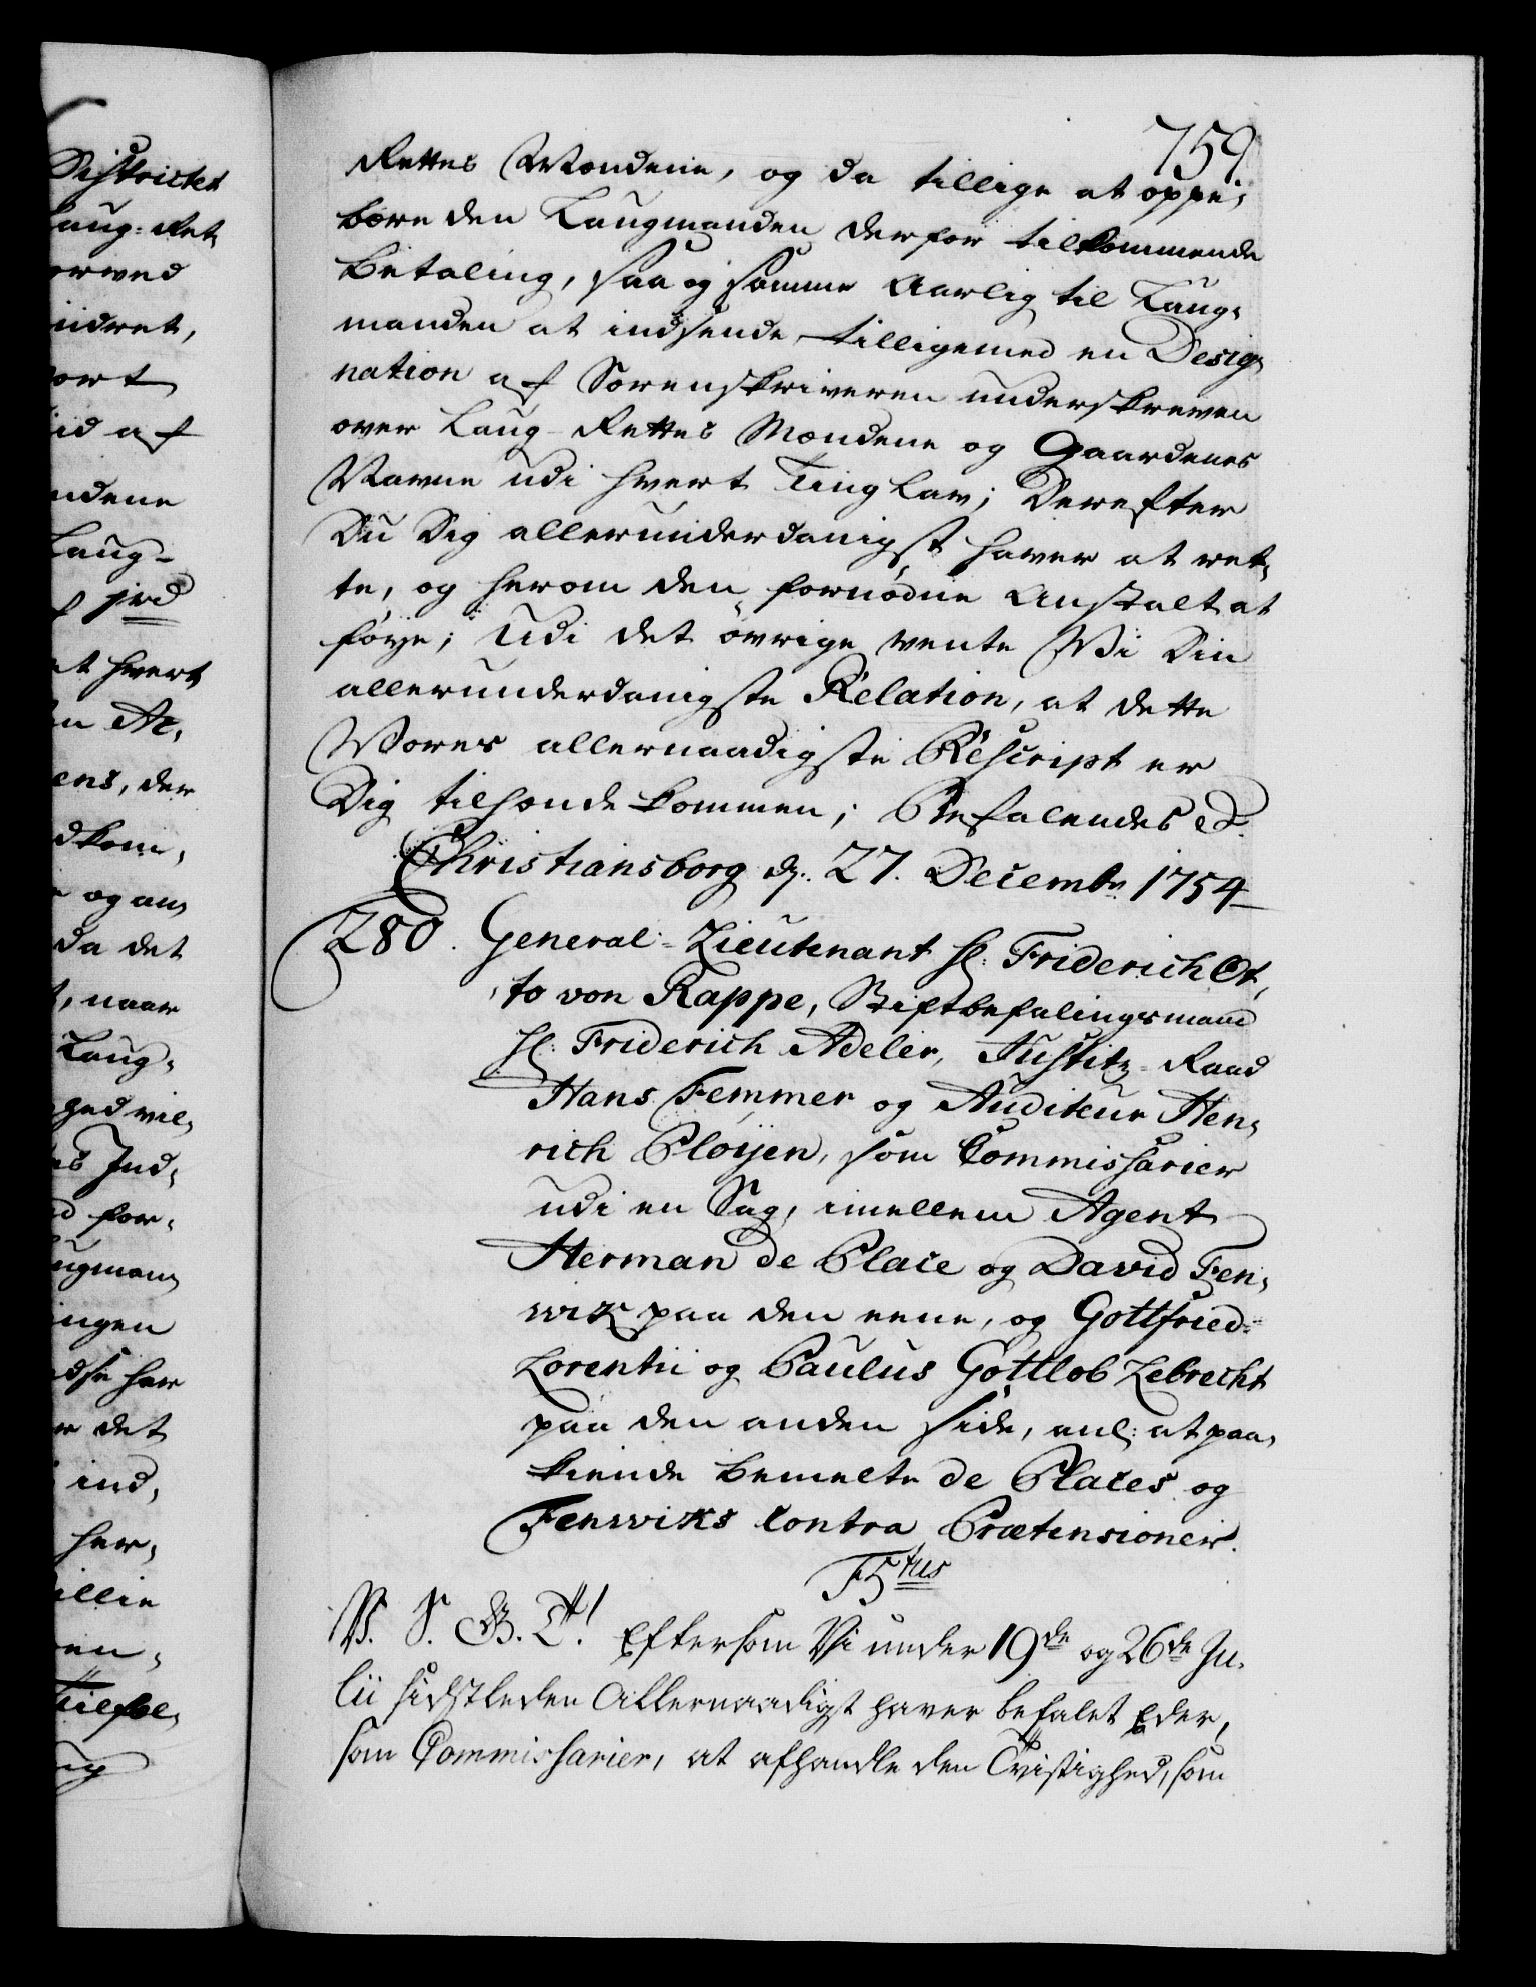 759.
Rettes Mændene, og da tillige at oppe¬
bære den Laugmanden derfor tilkommende
Betaling, saa og samme Aarlig til Laug¬
manden at indsende tilligemed en Desig¬
nation af Sorenskriveren underskreven
over Laug-Rettes Mændene og Gaardenes
Navne udi hvert Tinglav; Derefter
Du Dig allerunderdanigst haver at ret¬
te, og herom den fornødne Anstalt at
føÿe; Udi det øvrige vente Vi Din
allerunderdanigste Relation, at dette
Vores allernaadigste Rescript er
Dig tilhænde kommen; Befalendes etc.
Christiansborg d. 27. Decembr 1754
280. General-Lieutenant Hr: Friderich Ot¬
to von Rappe, Stiftbefalingsmand
Hr: Friderich Adeler, Justitz-Raad
Hans Femmer og Auditeur Hen¬
rich Ploÿen, som Commissarier
udi en Sag, imellem Agent
Herman de Place og David Fen¬
wik paa den eene, og Gottfried
Lorentii og Paulus Gottlob Lebrecht
paa den anden side, anl: at paa¬
kiende bemelte de Places og
Fenwiks Contra Prætensioner.
F5tus
V. S. G. T! Eftersom Vi under 19de og 26de Ju¬
lii sidstleden Allernaadigst haver befalet Eder,
som Commissarier, at afhandle den Tvistighed, som
Districtet
Laug-Ret
ort
id af
ndene
Laug-
jvd
at hvert
ens, der
og an¬
da det
naar
Laug¬
Ind¬
for¬
ingen
det
ind¬
her¬